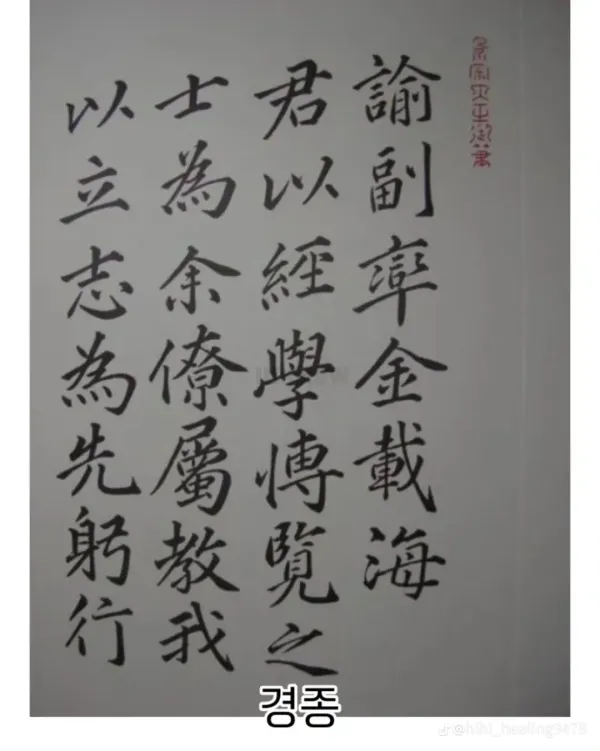 諭副率金載海
君以經學博覽之
士為余僚屬教我
以立志為先躬行
경종